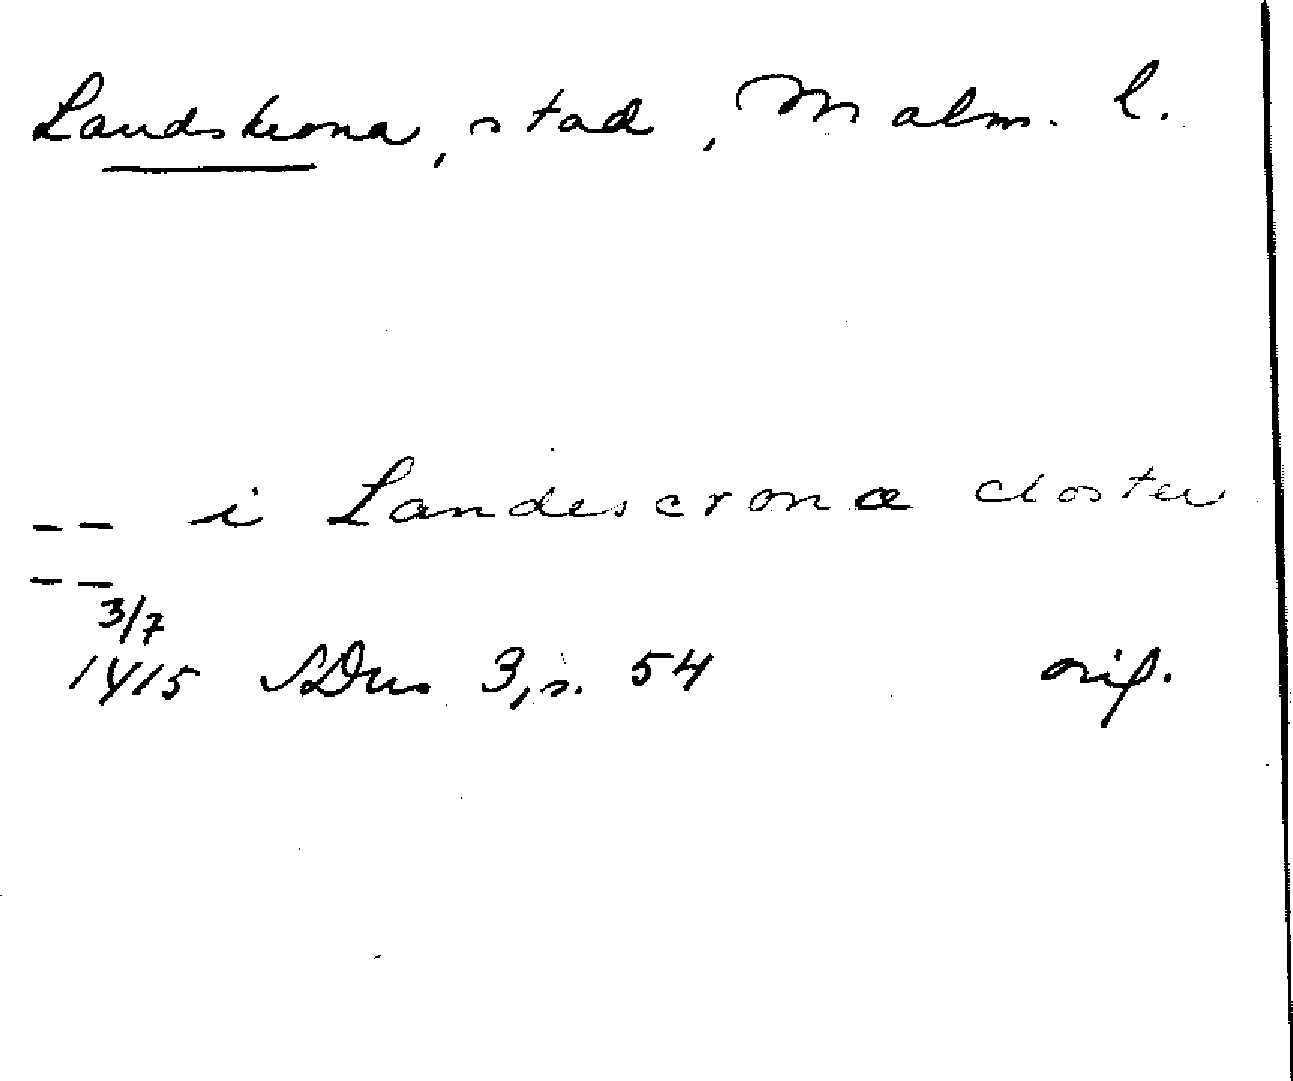 Landskrona, stad, Malm. l.
-- i Landescrona closter
--
3/7
1415 SDns 3, s. 54 orig.